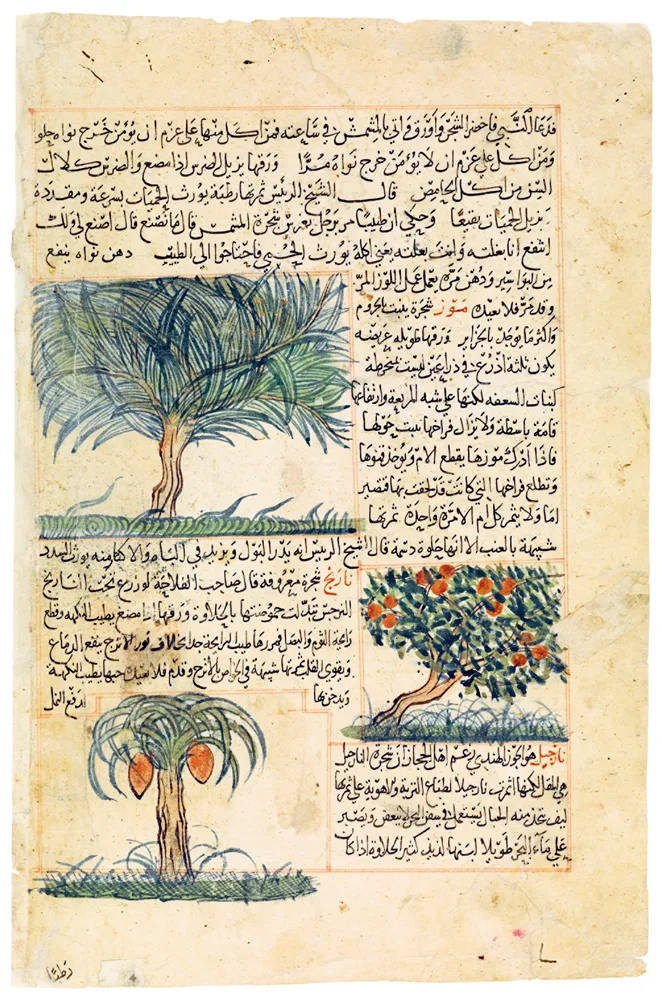 فدعا النبي فاخضر الشجر واورق واتى بالمشمش في ساعته فمن اكل منها على عزم ان يؤمن خرج نواه حلو
ومن اكل على عزم ان لا يؤمن خرج نواه مرا ورقها يزيل الضرس اذا مضغ والضرس كلال
السن من اكل الحامض قال الشيخ الرئيس ثمرتها رطبة يورث الحميات بسرعة ومقدده
يزيل الحميات نقيعا وحكي ان طبيبا مر برجل يغرس شجرة المشمش قال ما تصنع قال اصنع لي ولك
انتفع انا بغلته وانت بعلته يعني اكله يورث الحمى فاحتاجوا الى الطبيب دهن نواه ينفع
من البواسير ودهن مره يعمل عمل اللوز المر
وقد مر فلا نعيده موز شجرة ينبت بالجروم
واكثر ما يوجد بالجزاير ورقها طويله عريضه
يكون ثلثة اذرع في ذراعين ليست منخرطة
كنبات السعفه لكنها على شبه المربعة وارتفاعها
قامة باسطة ولا يزال فراخها تنبت حولها
فاذا ادرك موزها يقطع الام ويوخذ قنوها
وتطلع فراخها التي كانت قد لحقت بها فتصير
اما ولا يثمر كل ام الا مرة واحدة ثمرتها
شبيهة بالعنب الا انها حلوة دسمة قال الشيخ الرئيس انه يدر البول ويزيد في الباه والاكثار منه يورث السدد
نارنج شجرة معروفة قال صاحب الفلاحة لو زرع تحت النارنج
النرجس تبدلت حموضتها بالحلاوة ورقها اذا مضغ يطيب النكهة وقطع
رايحة الثوم والبصل زهرها طيب الرايحة جدا بخلاف نور الاترج ينفع الدماغ
ويقوي القلب ثمرتها شبيهة في الخواص بالاترج وقد مر فلا نعيده حبها يطيب النكهة
ويدخن بها
النمل
نارجيل هو الجوز الهندي زعم اهل الحجاز ان شجرة النارجيل
هي المقل لكنها اثمرت نارجيلا لطباع التربة والاهوية على ثمرتها
ليف يتخذ منه الحبال يستعمل في سفن البحر لا يتعفن ويصبر
على ماء البحر طويلا لبنها لذيذ كثير الحلاوة اذا كان